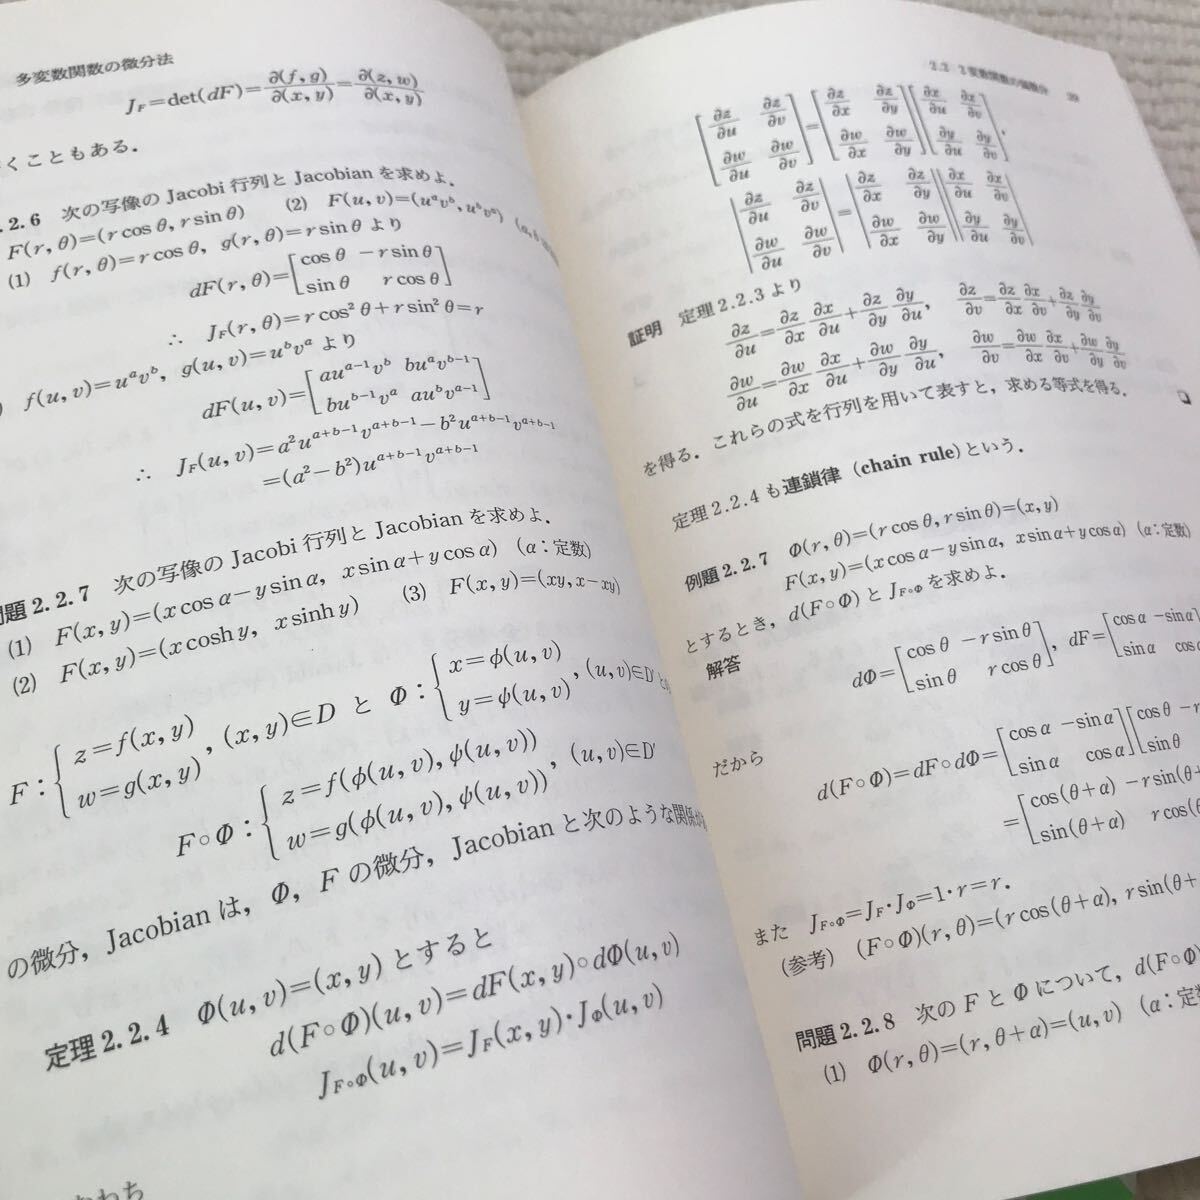 多変数関数の微分法
J_F=det(dF)=∂(f, g)/∂(x, y)=∂(z, w)/∂(x, y)
くこともある.
.2.6 次の写像の Jacobi 行列と Jacobian を求めよ.
F(r, θ)=(r cos θ, r sin θ) (2) F(u, v)=(u^a v^b, u^b v^a)
(1) f(r, θ)=r cos θ, g(r, θ)=r sin θ より
dF(r, θ)=[cos θ −r sin θ
sin θ r cos θ]
∴ J_F(r, θ)=r cos² θ+r sin² θ=r
f(u, v)=u^a v^b, g(u, v)=u^b v^a より
dF(u, v)=[au^{a−1}v^b bu^a v^{b−1}
bu^{b−1}v^a au^b v^{a−1}]
∴ J_F(u, v)=a²u^{a+b−1}v^{a+b−1}−b²u^{a+b−1}v^{a+b−1}
=(a²−b²)u^{a+b−1}v^{a+b−1}
問題 2.2.7 次の写像の Jacobi 行列と Jacobian を求めよ.
(1) F(x, y)=(x cos α−y sin α, x sin α+y cos α) (α：定数)
(2) F(x, y)=(x cosh y, x sinh y) (3) F(x, y)=(xy, x−xy)
F：{z=f(x, y)
w=g(x, y), (x, y)∈D と Φ：{x=φ(u, v)
y=ψ(u, v), (u, v)∈D′
F∘Φ：{z=f(φ(u, v), ψ(u, v))
w=g(φ(u, v), ψ(u, v)), (u, v)∈D′
の微分, Jacobian は, Φ, F の微分, Jacobian と次のような関係が
定理 2.2.4 Φ(u, v)=(x, y) とすると
d(F∘Φ)(u, v)=dF(x, y)∘dΦ(u, v)
J_{F∘Φ}(u, v)=J_F(x, y)・J_Φ(u, v)
わち
2.2 2変数関数の偏微分 39
[∂z/∂u ∂z/∂v
∂w/∂u ∂w/∂v]=[∂z/∂x ∂z/∂y
∂w/∂x ∂w/∂y][∂x/∂u ∂x/∂v
∂y/∂u ∂y/∂v],
|∂z/∂u ∂z/∂v
∂w/∂u ∂w/∂v|=|∂z/∂x ∂z/∂y
∂w/∂x ∂w/∂y||∂x/∂u ∂x/∂v
∂y/∂u ∂y/∂v|
証明 定理 2.2.3 より
∂z/∂u=∂z/∂x ∂x/∂u+∂z/∂y ∂y/∂u, ∂z/∂v=∂z/∂x ∂x/∂v+∂z/∂y ∂y/∂v
∂w/∂u=∂w/∂x ∂x/∂u+∂w/∂y ∂y/∂u, ∂w/∂v=∂w/∂x ∂x/∂v+∂w/∂y ∂y/∂v
を得る. これらの式を行列を用いて表すと, 求める等式を得る. ❏
定理 2.2.4 も連鎖律 (chain rule) という.
例題 2.2.7 Φ(r, θ)=(r cos θ, r sin θ)=(x, y)
F(x, y)=(x cos α−y sin α, x sin α+y cos α) (α：定数)
とするとき, d(F∘Φ) と J_{F∘Φ} を求めよ.
解答
dΦ=[cos θ −r sin θ
sin θ r cos θ], dF=[cos α −sin α
sin α cos
だから
d(F∘Φ)=dF∘dΦ=[cos α −sin α
sin α cos α][cos θ −r
sin θ
=[cos(θ+α) −r sin(θ+
sin(θ+α) r cos(θ
また J_{F∘Φ}=J_F・J_Φ=1・r=r.
(参考) (F∘Φ)(r, θ)=(r cos(θ+α), r sin(θ+
問題 2.2.8 次の F と Φ について, d(F∘Φ
(1) Φ(r, θ)=(r, θ+α)=(u, v) (α：定数